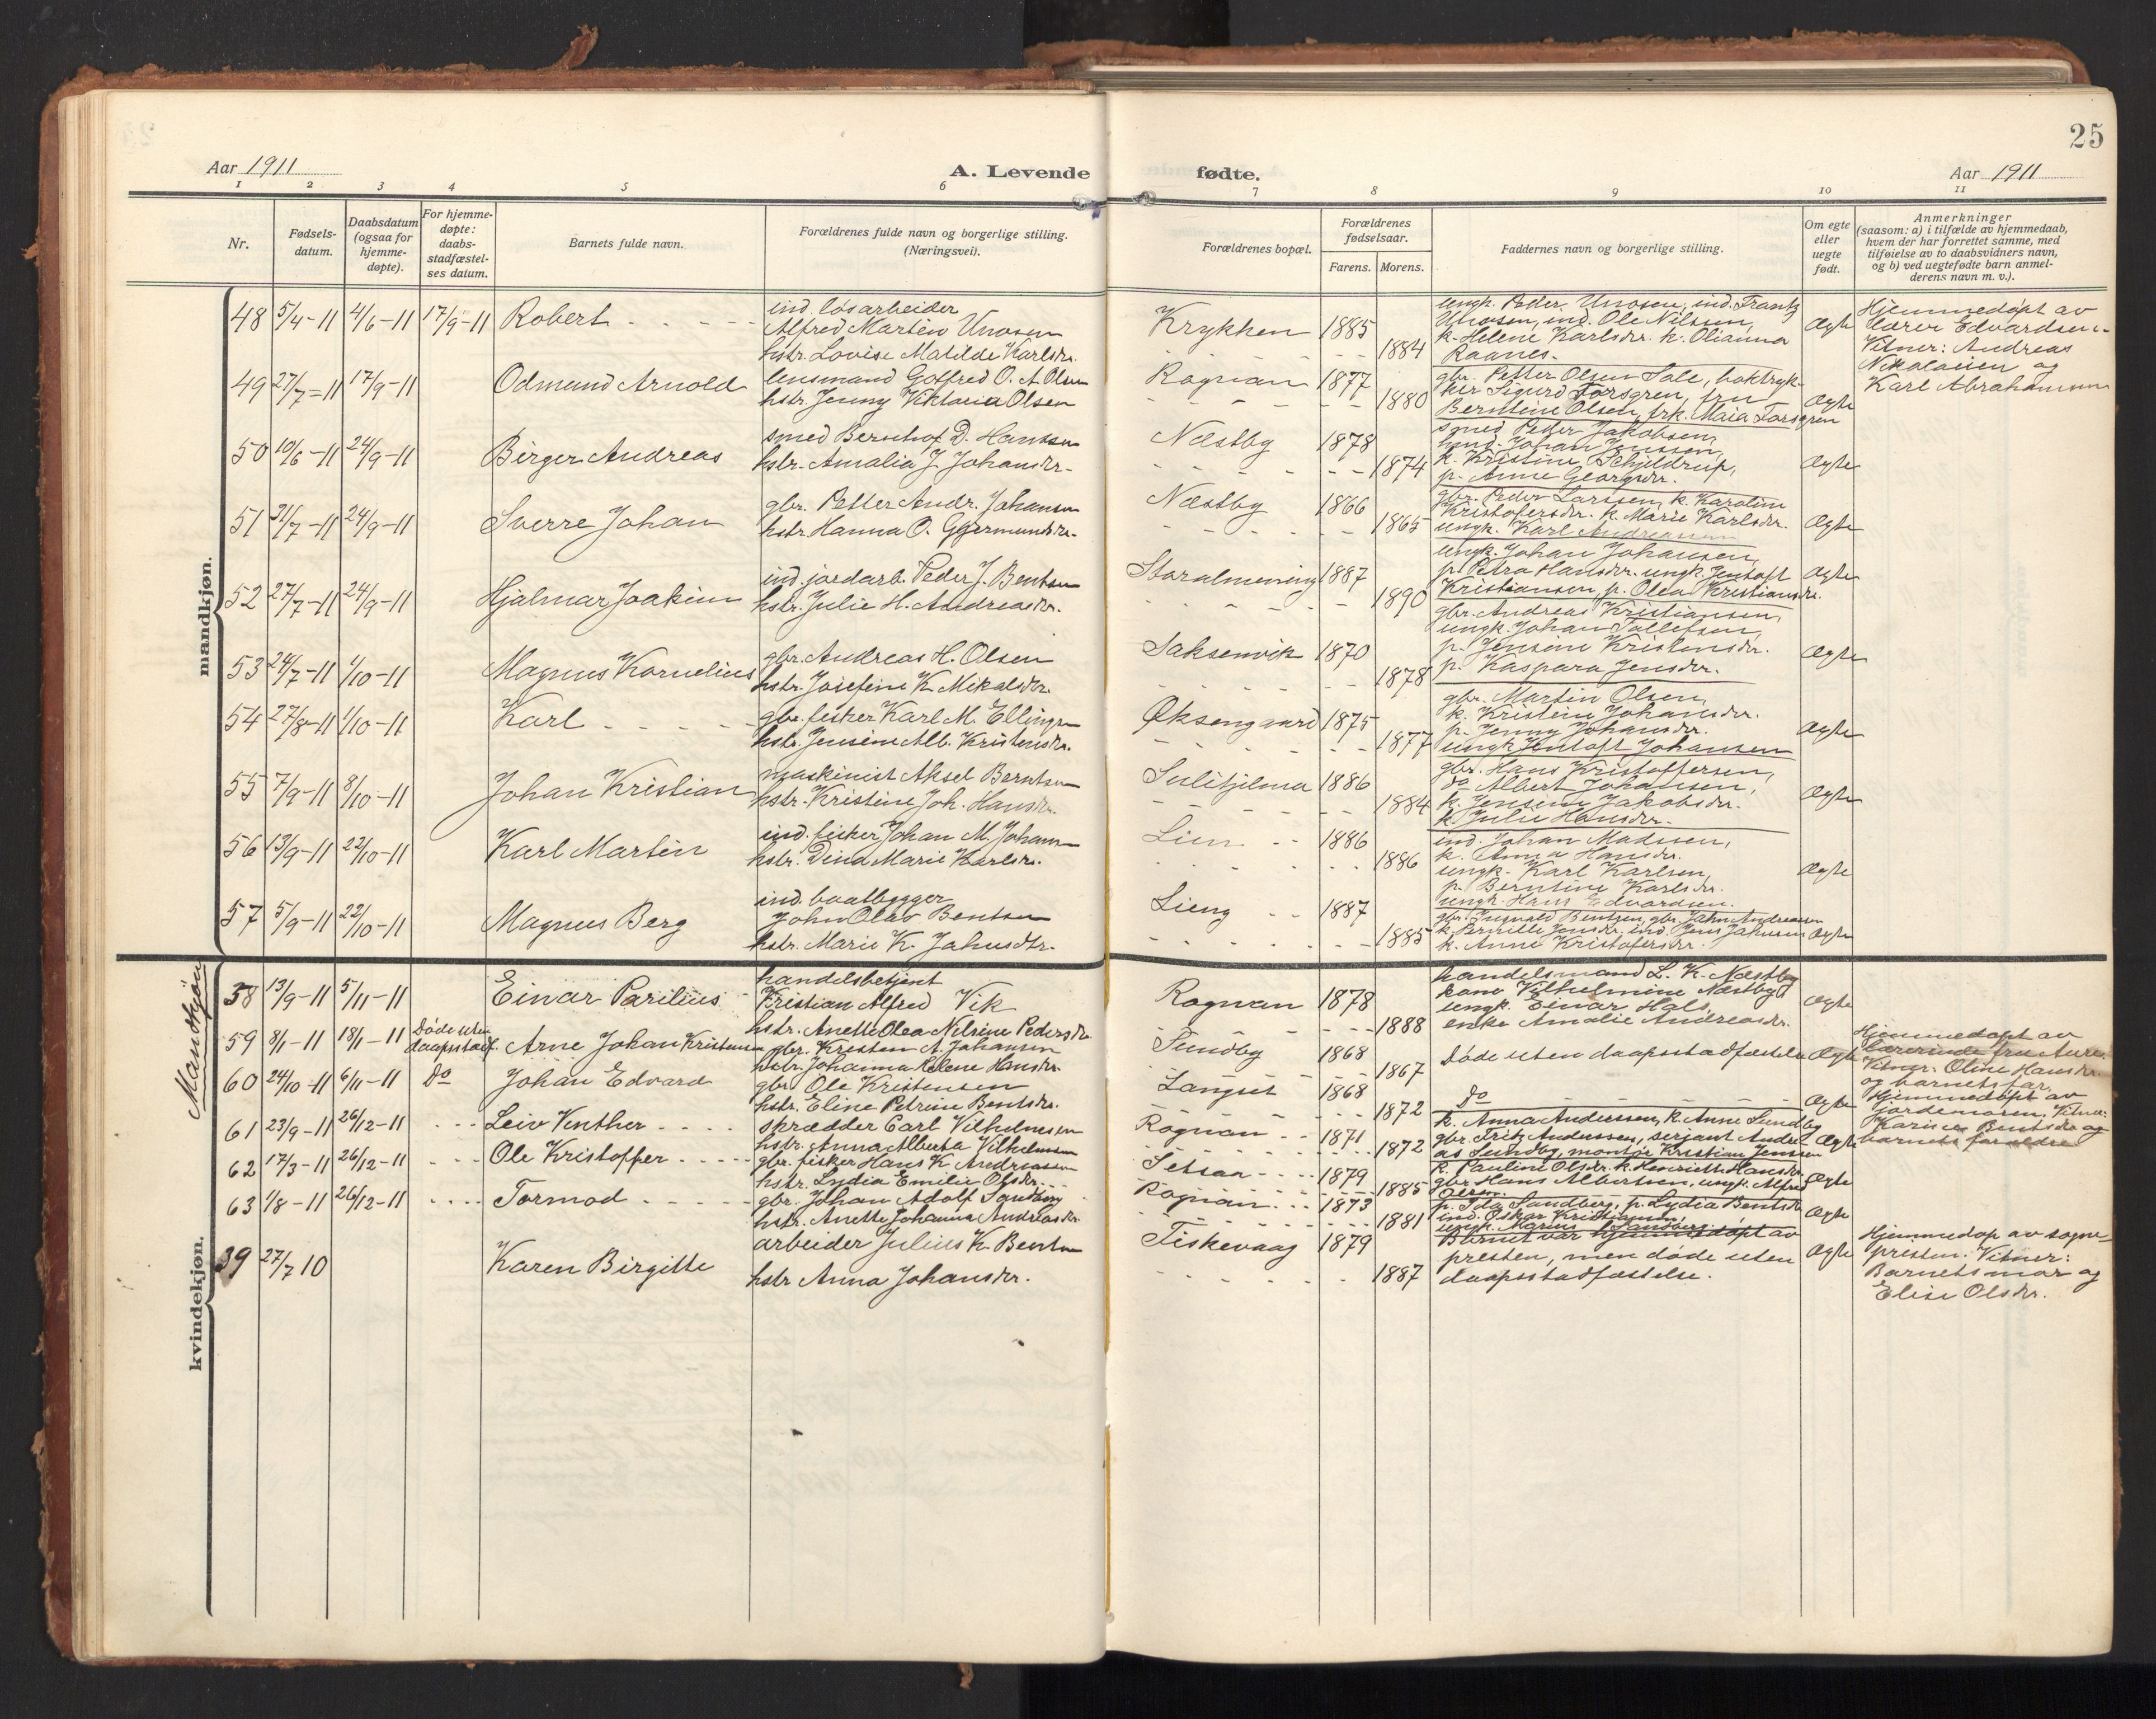 25
Aar 1911
A. Levende
fødte.
Aar 1911
1 2 3 4 5 6 7 8 9 10 11
Nr.
Fødsels-
datum.
Daabsdatum
(ogsaa for
hjemme-
døpte).
For hjemme-
døpte:
daabs-
stadfæstel-
ses datum.
Barnets fulde navn.
Forældrenes fulde navn og borgerlige stilling.
(Næringsvei).
Forældrenes bopæl.
Forældrenes
fødselsaar.
Farens. Morens.
Faddernes navn og borgerlige stilling.
Om egte
eller
uegte
født.
Anmerkninger
(saasom: a) i tilfælde av hjemmedaab,
hvem der har forrettet samme, med
tilføielse av to daabsvidners navn,
og b) ved uegtefødte barn anmel-
derens navn m. v.).
mandkjøn.
48 5/4-11 4/6-11 17/9-11 Robert
ind. løsarbeider
Alfred Martin Unosen
hstr. Lovise Matilde Karlsdr.
Krykken 1885
1884
ungk. Peder Unosen, ind. Frantz
Unosen, ind. Ole Nilssen,
k. Helene Karlsdr. k. Olianna
Raanes.
Ægte
Hjemmedøpt av
lærer Edvardsen.
Vitner: Andreas
Nikolaisen og
Karl Abrahamsen
49 27/7-11 17/9-11 Odmund Arnold
lensmand Gotfred O. A. Olsen
hstr. Jenny Viktoria Olsen
Rognan 1877
1880
gbr. Petter Olsen Sale, boktryk-
ker Sigurd Forsgren, fru
Berntine Olsen, frk. Maia Forsgren
Ægte
50 10/6-11 24/9-11 Birger Andreas
smed Bernhof D. Hansen
hstr. Amalia J. Johansdr.
Næstby 1878
1874
smed Peder Jakobsen,
hmd. Johan Jenssen,
k. Kristine Schjeldrup,
p. Anne Georgsdr.
Ægte
51 31/7-11 24/9-11 Sverre Johan
gbr. Petter Andr. Johansen
hstr. Hanna O. Gjermundsdr.
Næstby 1866
1865
gbr. Peder Larssen, k. Karoline
Kristofersdr. k. Marie Karlsdr.
ungk. Karl Andreassen
Ægte
52 27/7-11 24/9-11 Hjalmar Joakim
ind. jordarb. Peder J. Bentsen
hstr. Julie H. Andreasdr.
Storalmening 1887
1890
ungk. Johan Johansen,
p. Petra Hansdr. ungk. Jentoft
Kristiansen, p. Olea Kristiansdr.
Ægte
53 24/7-11 1/10-11 Magnus Kornelius
gbr. Andreas H. Olsen
hstr. Josefine K. Mikalsdr.
Saksenvik 1870
1878
gbr. Andreas Kristiansen,
ungk. Johan Tollefsen,
p. Jensine Kristensdr.
p. Kaspara Jensdr.
Ægte
54 27/8-11 1/10-11 Karl
gbr. fisker Karl M. Ellingsen
hstr. Jensine Alb. Kristensdr.
Øksengaard 1875
1877
gbr. Martin Olsen,
k. Kristine Johansdr.
p. Jenny Johansdr.
ungk. Jentoft Johansen
Ægte
55 7/9-11 8/10-11 Johan Kristian
maskinist Aksel Berntsen
hstr. Kristine Joh. Hansdr.
Sulitjelma 1886
1884
gbr. Hans Kristoffersen,
do Albert Johansen,
k. Jensine Jakobsdr.
k. Julie Hansdr.
Ægte
56 13/9-11 22/10-11 Karl Martin
ind. fisker Johan M. Johansen
hstr. Dina Marie Karlsdr.
Lien 1886
1886
ind. Johan Madssen,
k. Anna Hansdr.
ungk. Karl Karlsen,
p. Berntine Karlsdr.
ungk. Hans Edvardsen.
Ægte
57 5/9-11 22/10-11 Magnus Berg
ind. baatbygger
John Olav Bentsen
hstr. Marie K. Jahnsdtr.
Lieng 1887
1885
gbr. Ingvald Bentsen, gbr. John Andreassen
k. Pernille Jonsdr. ind. Jens Jahnsen
k. Anne Kristofersdr.
Ægte
Mandkjøn
58 13/9-11 5/11-11 Einar Parilius
handelsbetjent
Kristian Alfred Vik
hstr. Anette Olea Nelsine Pedersdr.
Rognan 1878
1888
handelsmand L. K. Næstby
kone Vilhelmine Næstby
ungk. Einar Hals,
enke Amalie Andreasdr.
Ægte
59 8/1-11 18/1-11 Døde uten
daapsstadf. Arne Johan Kristensen
gbr. Kristen A. Johansen
hstr. Johanna Helene Hansdr.
Sundby 1868
1867
Døde uten daapsstadfæstelse Ægte
Hjemmedøpt av
lærerinde fru Aure.
Vitner: Oline Hansdr.
og barnets far.
60 24/10-11 6/11-11 Do Johan Edvard
gbr. Ole Kristensen
hstr. Eline Petrine Bentsdr.
Langset 1868
1872
Do
Ægte
Hjemmedøpt av
jordemoren. Vitner:
Karine Bentsdr. og
barnets forældre
61 23/9-11 26/12-11 Leiv Venther
skrædder Carl Vilhelmsen
hstr. Anna Alberta Vilhelmsen
Rognan 1871
1872
k. Anna Anderssen, k. Anne Sundby
gbr. Fritz Anderssen, serjant Andre-
as Sundby, montør Kristian Jenssen
Ægte
62 17/3-11 26/12-11 Ole Kristoffer
gbr. fisker Hans K. Andreassen
hstr. Lydia Emilie Olsdr.
Setsaa 1879
1885
k. Pauline Olsdr. k. Henriette Hansdr.
gbr. Hans Albertsen, ungk. Alfred
Olsen.
Ægte
63 1/8-11 26/12-11 Tormod
gbr. Johan Adolf Sandberg
hstr. Anette Johanna Andreasdr.
Rognan 1873
1881
p. Ida Sandberg, p. Lydia Bentsdr.
ind. Oskar Kristiansen,
ungk. Marius Sandberg.
Ægte
kvindekjøn.
39 27/7 10 Karen Birgitte
arbeider Julius K. Bentsen
hstr. Anna Johansdr.
Fiskevaag 1879
1887
Barnet var hjemmedøpt av
presten, men døde uten
daapsstadfæstelse.
Ægte
Hjemmedøp av sogne-
presten. Vitner:
Barnets mor og
Elise Olsdr.